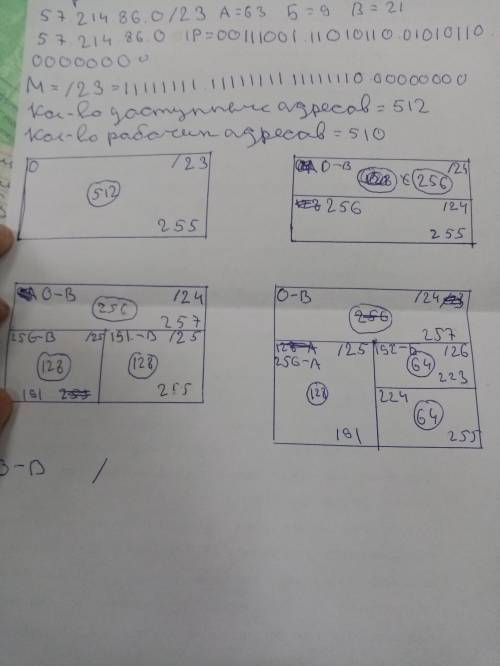 57.214.86.0/23 А=63 Б=9 В=21
57.214.86.0 IP=00111001.11010110.01010110.
00000000
М=/23=11111111.11111111.11111110.00000000
Кол-во доступных адресов=512
Кол-во рабочих адресов=510
0 /23
512
255
0-В /24
256
256 /24
255
0-В /24
256
257
256-В /25 191-В /25
128 128
191 255
0-В /24
256
257
256-А /25 192-Б /26
64
223
128
224
64
191 255
0-В /